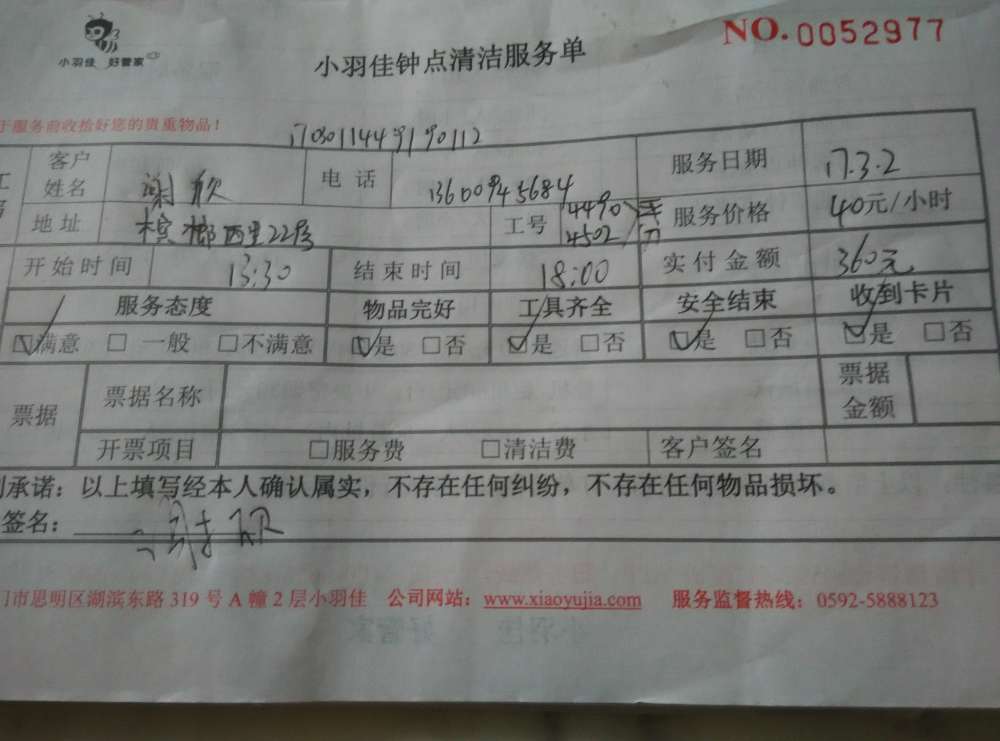 小羽佳 好管家
小羽佳钟点清洁服务单
NO. 0052977
于服务前收拾好您的贵重物品！
客户姓名 谢欣 电话 13600945684 服务日期 17.3.2
地址 槟榔西里22号 工号 4490 4502 服务价格 40元/小时
开始时间 13:30 结束时间 18:00 实付金额 360元
服务态度 物品完好 工具齐全 安全结束 收到卡片
☑满意 □一般 □不满意 ☑是 □否 ☑是 □否 ☑是 □否 ☑是 □否
票据 票据名称 票据金额
开票项目 □服务费 □清洁费 客户签名
承诺：以上填写经本人确认属实，不存在任何纠纷，不存在任何物品损坏。
签名：谢欣
市思明区湖滨东路 319 号 A 幢 2 层小羽佳 公司网站：www.xiaoyujia.com 服务监督热线：0592-5888123